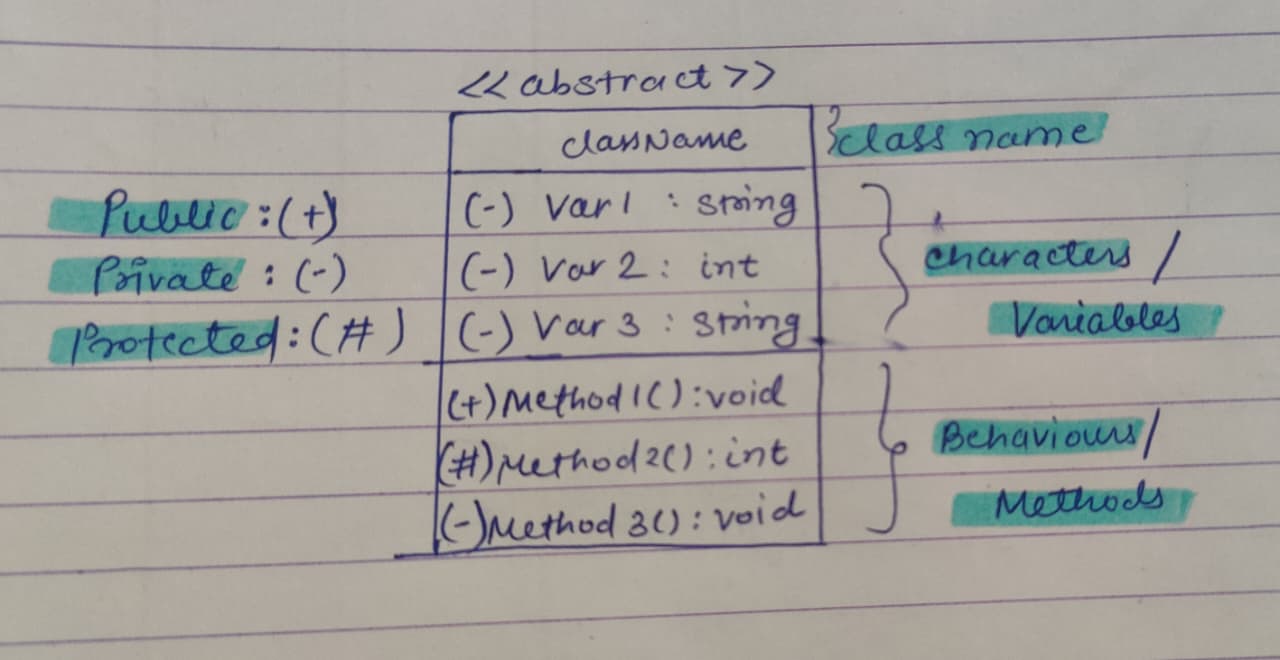 <<abstract>>
className
}class name
Public :(+)
Private : (-)
Protected:(#)
(-) Var1 : string
(-) Var 2 : int
(-) Var 3 : string
characters /
Variables
(+)Method1():void
(#)Method2():int
(-)Method3():void
Behaviours/
Methods